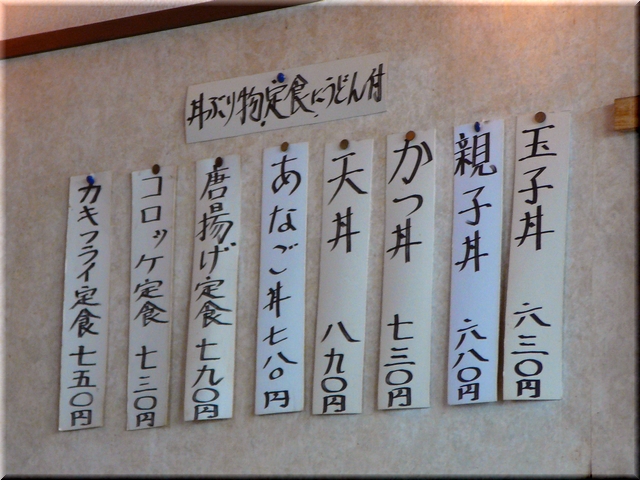 丼ぶり物定食にうどん付
玉子丼 六三〇円
親子丼 六八〇円
かつ丼 七三〇円
天丼 八九〇円
あなご丼 七八〇円
唐揚げ定食 七九〇円
コロッケ定食 七三〇円
カキフライ定食 七五〇円